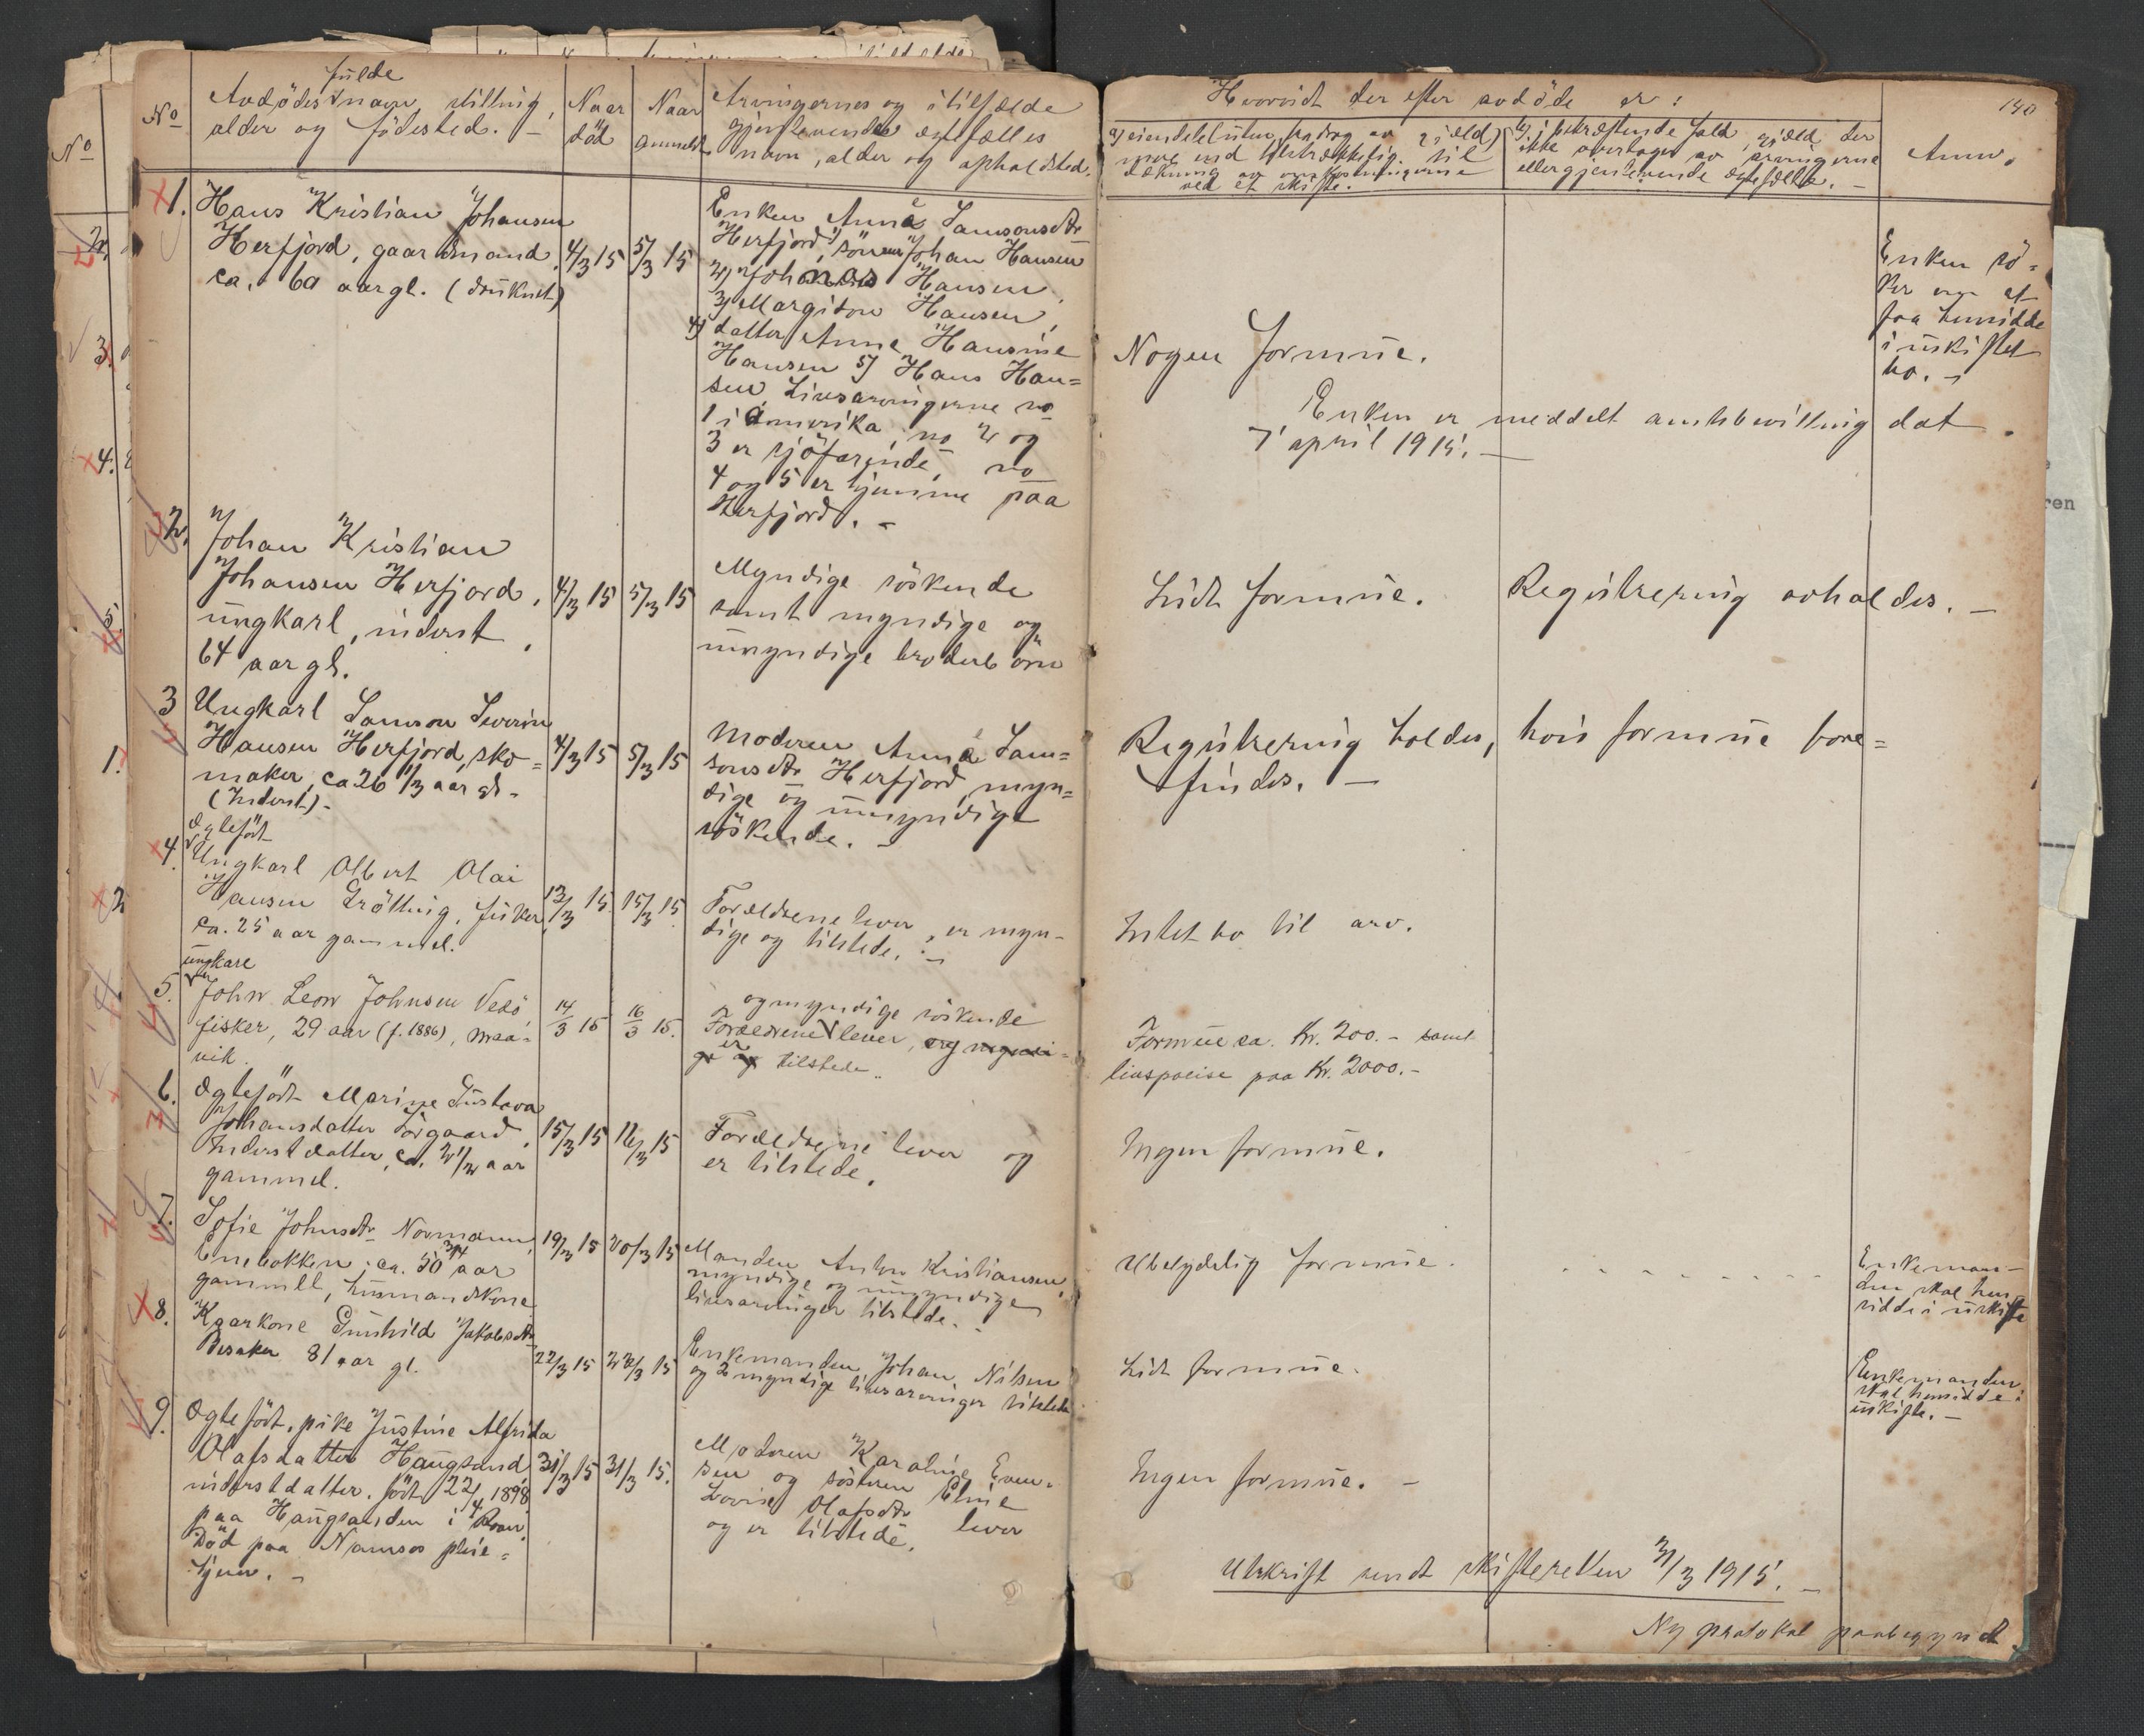 No
Avdödes fulde navn, stilling,
alder og födested. —
Naar
död
Naar
anmeldt
Arvingernes og i tilfælde
gjenlevende ægtefælles
navn, alder og opholdsted.
Hvorvidt der efter avdöde er:
140
a) eiendele (uten fradrag av gjæld)
mere end tilstrækkelig til
dækning av omkostningerne
ved et skifte.
b) i bekræftende fald, gjæld der
ikke overtages av arvingerne
eller gjenlevende ægtefælle. —
Anm.
1.
Hans Kristian Johansen
Herfjord, gaardmand,
ca. 60 aar gl. (druknet)
4/3 15
5/3 15
Enken Anna Samsonsdtr
Herfjord, 1) sönnen Johan Hansen
2) Johannes Hansen,
3) Margidon Hansen,
4) datter Anne Hansine
Hansen 5) Hans Han=
sen. Livsarvingerne no
1 i Amerika, no 2 og
3 er sjöfarende, no
4 og 5 er hjemme paa
Herfjord. —
Nogen formue.
Enken er meddelt amtsbevilling dat.
7 april 1915. —
Enken sö=
ker om at
faa hensidde
i uskiftet
bo. —
2.
Johan Kristian
Johansen Herfjord,
ungkarl, inderst,
64 aar gl.
4/3 15
5/3 15
Myndige söskende
samt myndige og
umyndige broderbörn
Lidt formue.
Registrering avholdes. —
3
Ungkarl Samson Severin
Hansen Herfjord, sko=
maker, ca 26 1/3 aar gl.
(Inderst) —
4/3 15
5/3 15
Moderen Anna Sam=
sonsdtr Herfjord, myn=
dige og umyndige
söskende. —
Registrering holdes, hvis formue fore=
findes. —
4.
Ægtefödt
Ungkarl Albert Olai
Hansen Grötting, fisker,
ca. 25 aar gammel.
12/3 15
15/3 15
Forældrene lever, er myn=
dige og tilstede. —
Intet bo til arv.
5.
ungkare
John Leon Johnsen Vesö
fisker, 29 aar (f. 1886), Maa=
vik.
14/3 15
16/3 15.
og myndige söskende
Forældrene lever, og myndi=
ge og er tilstede.
Formue ca. Kr. 200.- samt
livspolise paa Kr. 2000.-
6.
Ægtefödt Marine Gustava
Johansdatter Sörgaard,
Inderstdatter, ca. 2 1/2 aar
gammel.
15/3 15
16/3 15
Forældrene lever og
er tilstede.
Ingen formue.
7.
Sofie Johnsdtr Normann,
Enebakken, ca. 50 3/4 aar
gammel, husmandskone
19/3 15
20/3 15
Manden Anton Kristiansen,
myndige og umyndige
livsarvinger tilstede. —
Ubetydelig formue.
Enkeman=
den skal hen=
sidde i uskifte
8.
Kaarkone Gunhild Jakobsdtr
Besaker 81 aar gl.
22/3 15
22/3 15
Enkemanden Johan Nilsen
og 2 myndige livsarvinger tilstede
Lidt formue.
Enkemanden
skal hensidde i
uskifte. —
9.
Ægtefödt, pike Justine Alfrida
Olafsdatter Haugsand
inderstdatter. Född 22/4 1898
paa Haugsanden i Roan.
Död paa Namsos pleie=
hjem. —
31/3 15
31/3 15.
Moderen Karoline Even=
sen og sösteren Eline
Lovise Olafsdtr lever
og er tilstede.
Ingen formue. —
Utskrift sendt skifteretten 31/3 1915. —
Ny protokol paabegyndt.